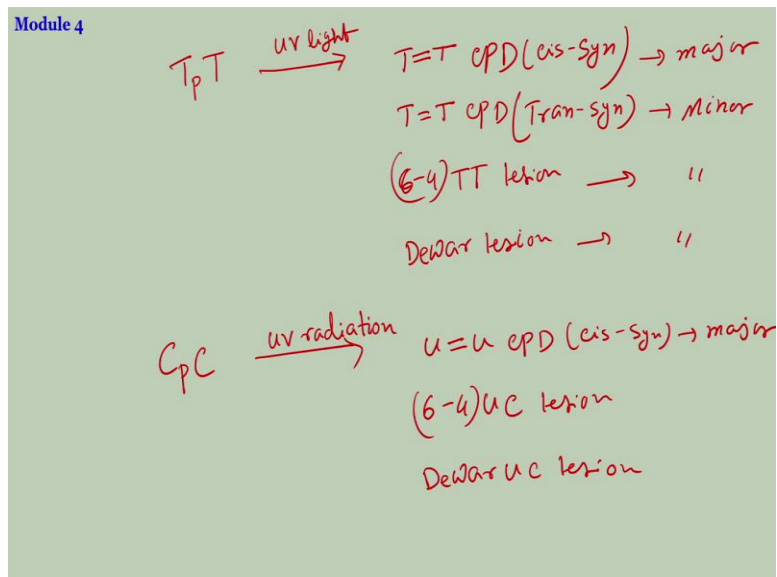 Module 4
TpT uv light → T=T CPD (cis-syn) → major
T=T CPD (Tran-syn) → Minor
(6-4) TT lesion → "
Dewar lesion → "
CpC uv radiation → U=U CPD (cis-syn) → major
(6-4) UC lesion
Dewar UC lesion